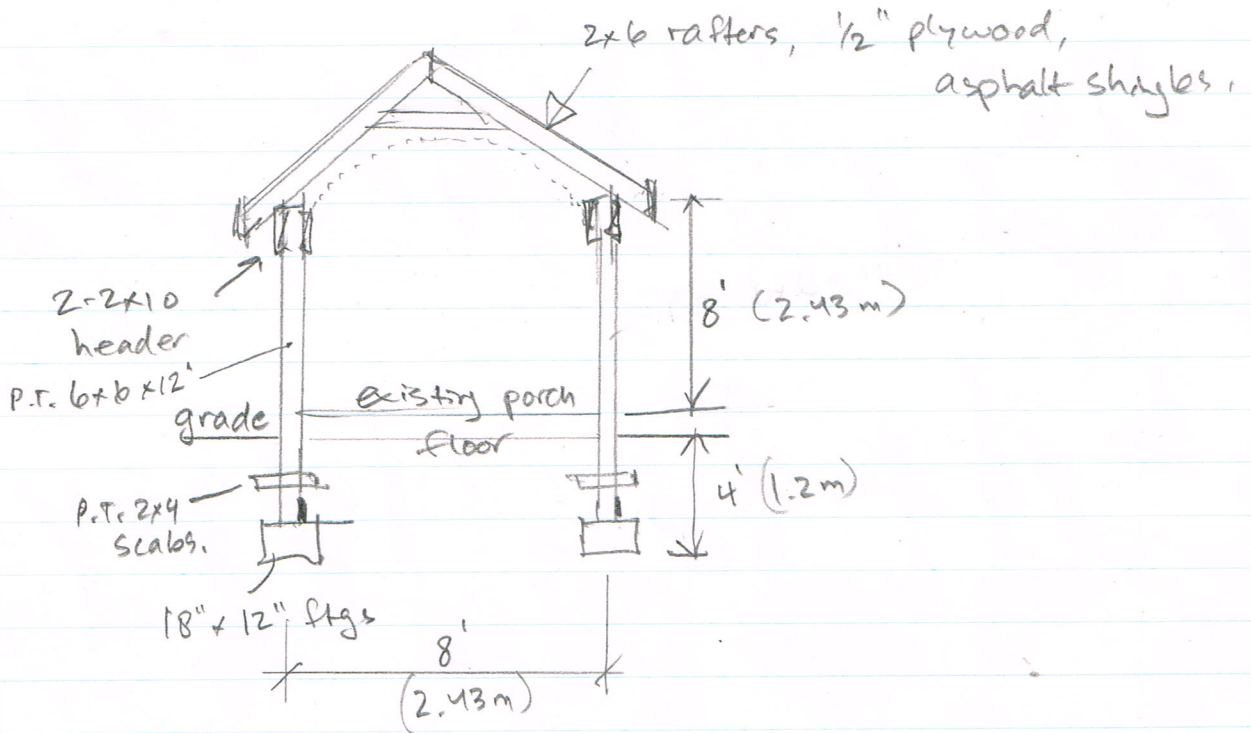 2x6 rafters, 1/2" plywood,
asphalt shingles.
2-2x10
header
P.T. 6x6x12'
grade
existing porch
floor
8' (2.43m)
4' (1.2m)
P.T. 2x4
scabs.
18"x12" ftgs
8'
(2.43m)